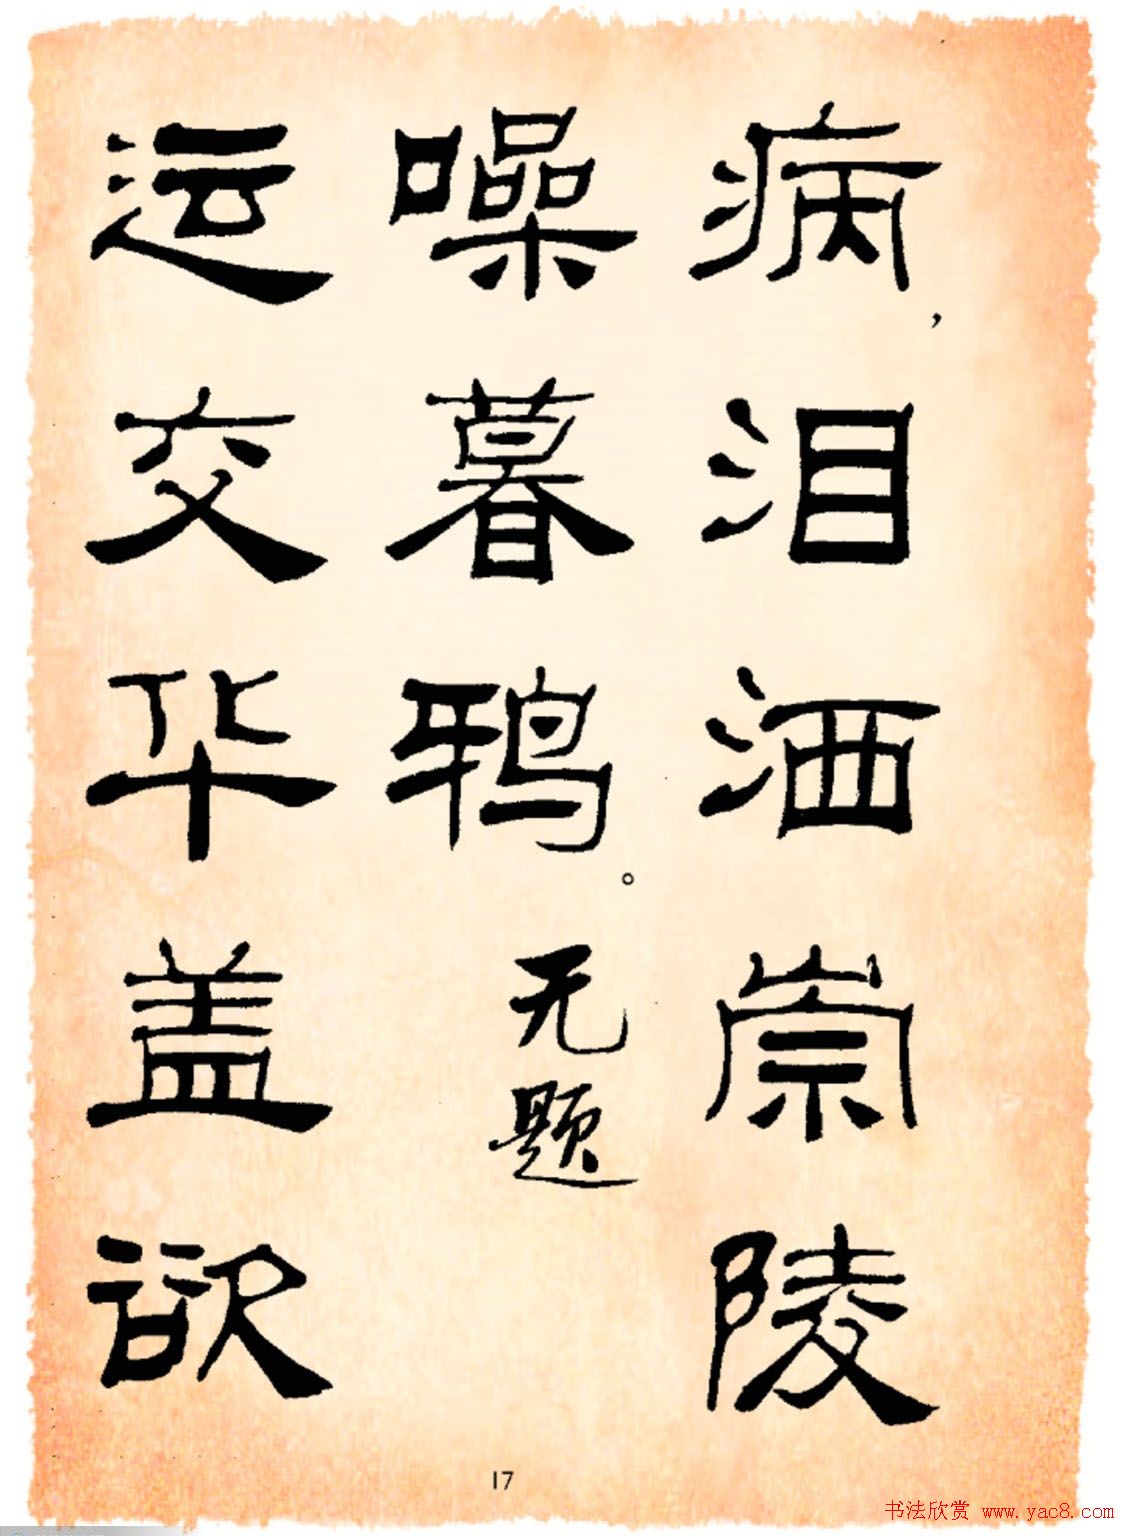 病，泪洒崇陵
噪暮鸦。无题
运交华盖欲
17
书法欣赏 www.yac8.com